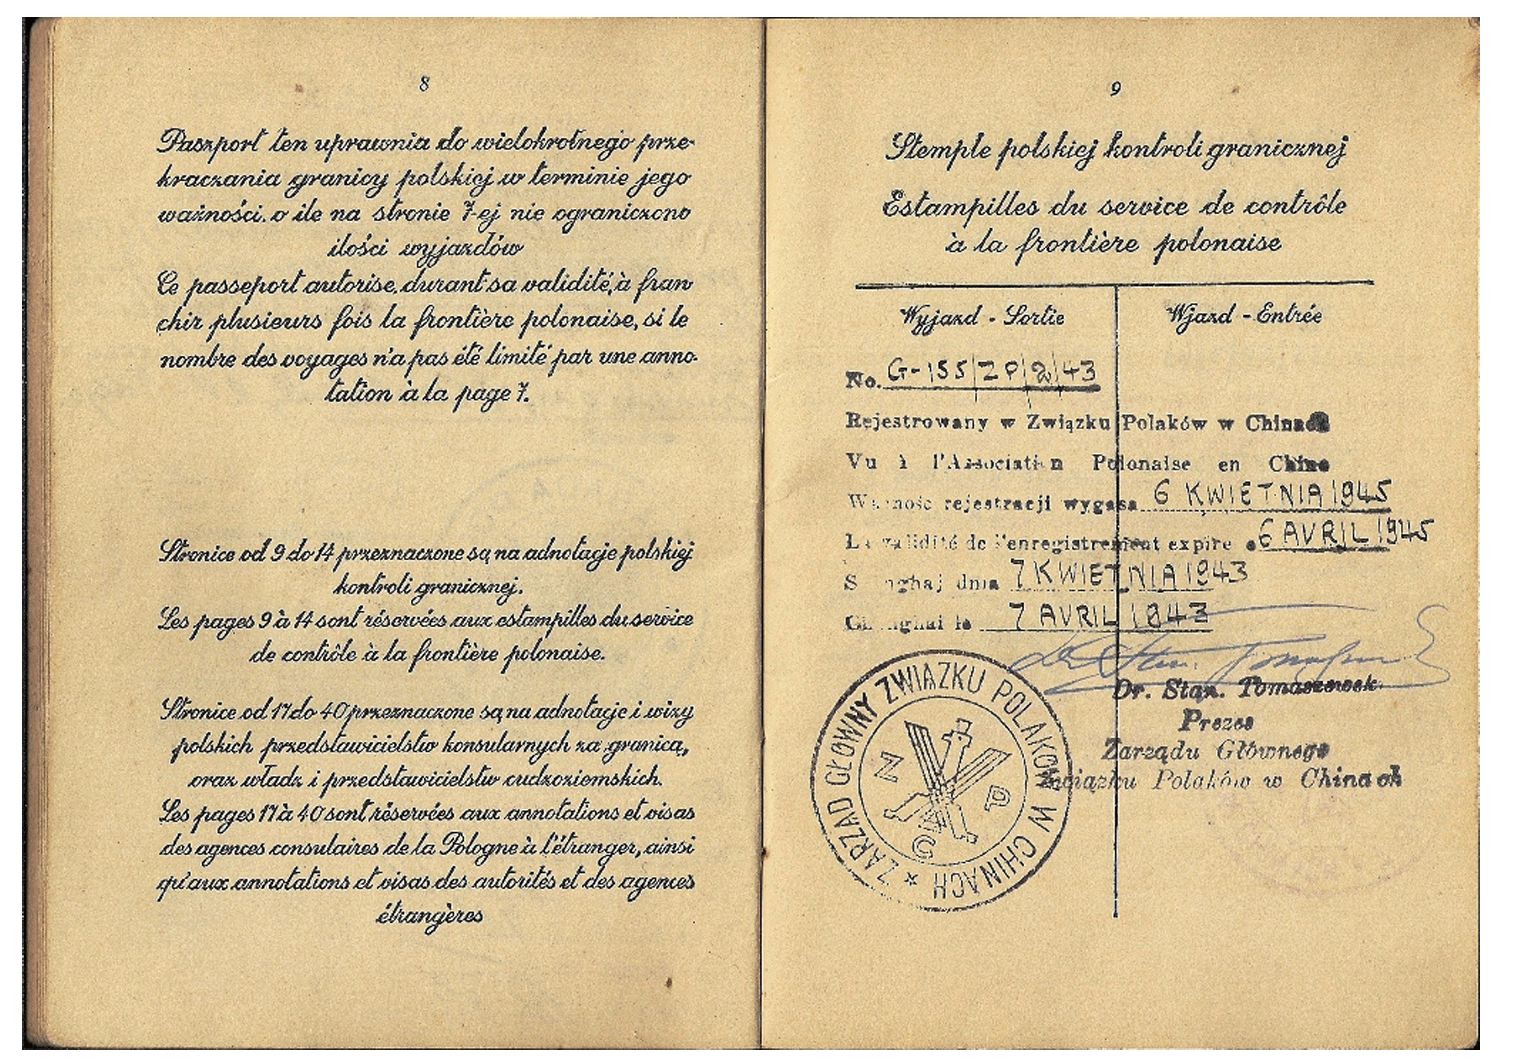 8
Paszport ten uprawnia do wielokrotnego prze-
kraczania granicy polskiej w terminie jego
ważności, o ile na stronie 7-ej nie ograniczono
ilości wyjazdów
Ce passeport autorise, durant sa validité, à fran
chir plusieurs fois la frontière polonaise, si le
nombre des voyages n'a pas été limité par une anno-
tation à la page 7.
Stronice od 9 do 14 przeznaczone są na adnotacje polskiej
kontroli granicznej.
Les pages 9 à 14 sont réservées aux estampilles du service
de contrôle à la frontière polonaise.
Stronice od 17 do 40 przeznaczone są na adnotacje i wizy
polskich przedstawicielstw konsularnych za granicą,
oraz władz i przedstawicielstw cudzoziemskich.
Les pages 17 à 40 sont réservées aux annotations et visas
des agences consulaires de la Pologne à l'étranger, ainsi
qu'aux annotations et visas des autorités et des agences
étrangères
9
Stemple polskiej kontroli granicznej
Estampilles du service de contrôle
à la frontière polonaise
Wyjazd - Sortie
Wjazd - Entrée
No. G-155/ZP/2/43
Rejestrowany w Związku Polaków w Chinach
Vu à l'Association Polonaise en Chine
Ważność rejestracji wygasa 6 KWIETNIA 1945
La validité de l'enregistrement expire 6 AVRIL 1945
Szanghaj dnia 7 KWIETNIA 1943
Changhai le 7 AVRIL 1843
Dr. Stan. Tomaszewski
Prezes
Zarządu Głównego
Związku Polaków w Chinach
ZARZĄD GŁÓWNY ZWIĄZKU POLAKÓW W CHINACH *
Z P W C